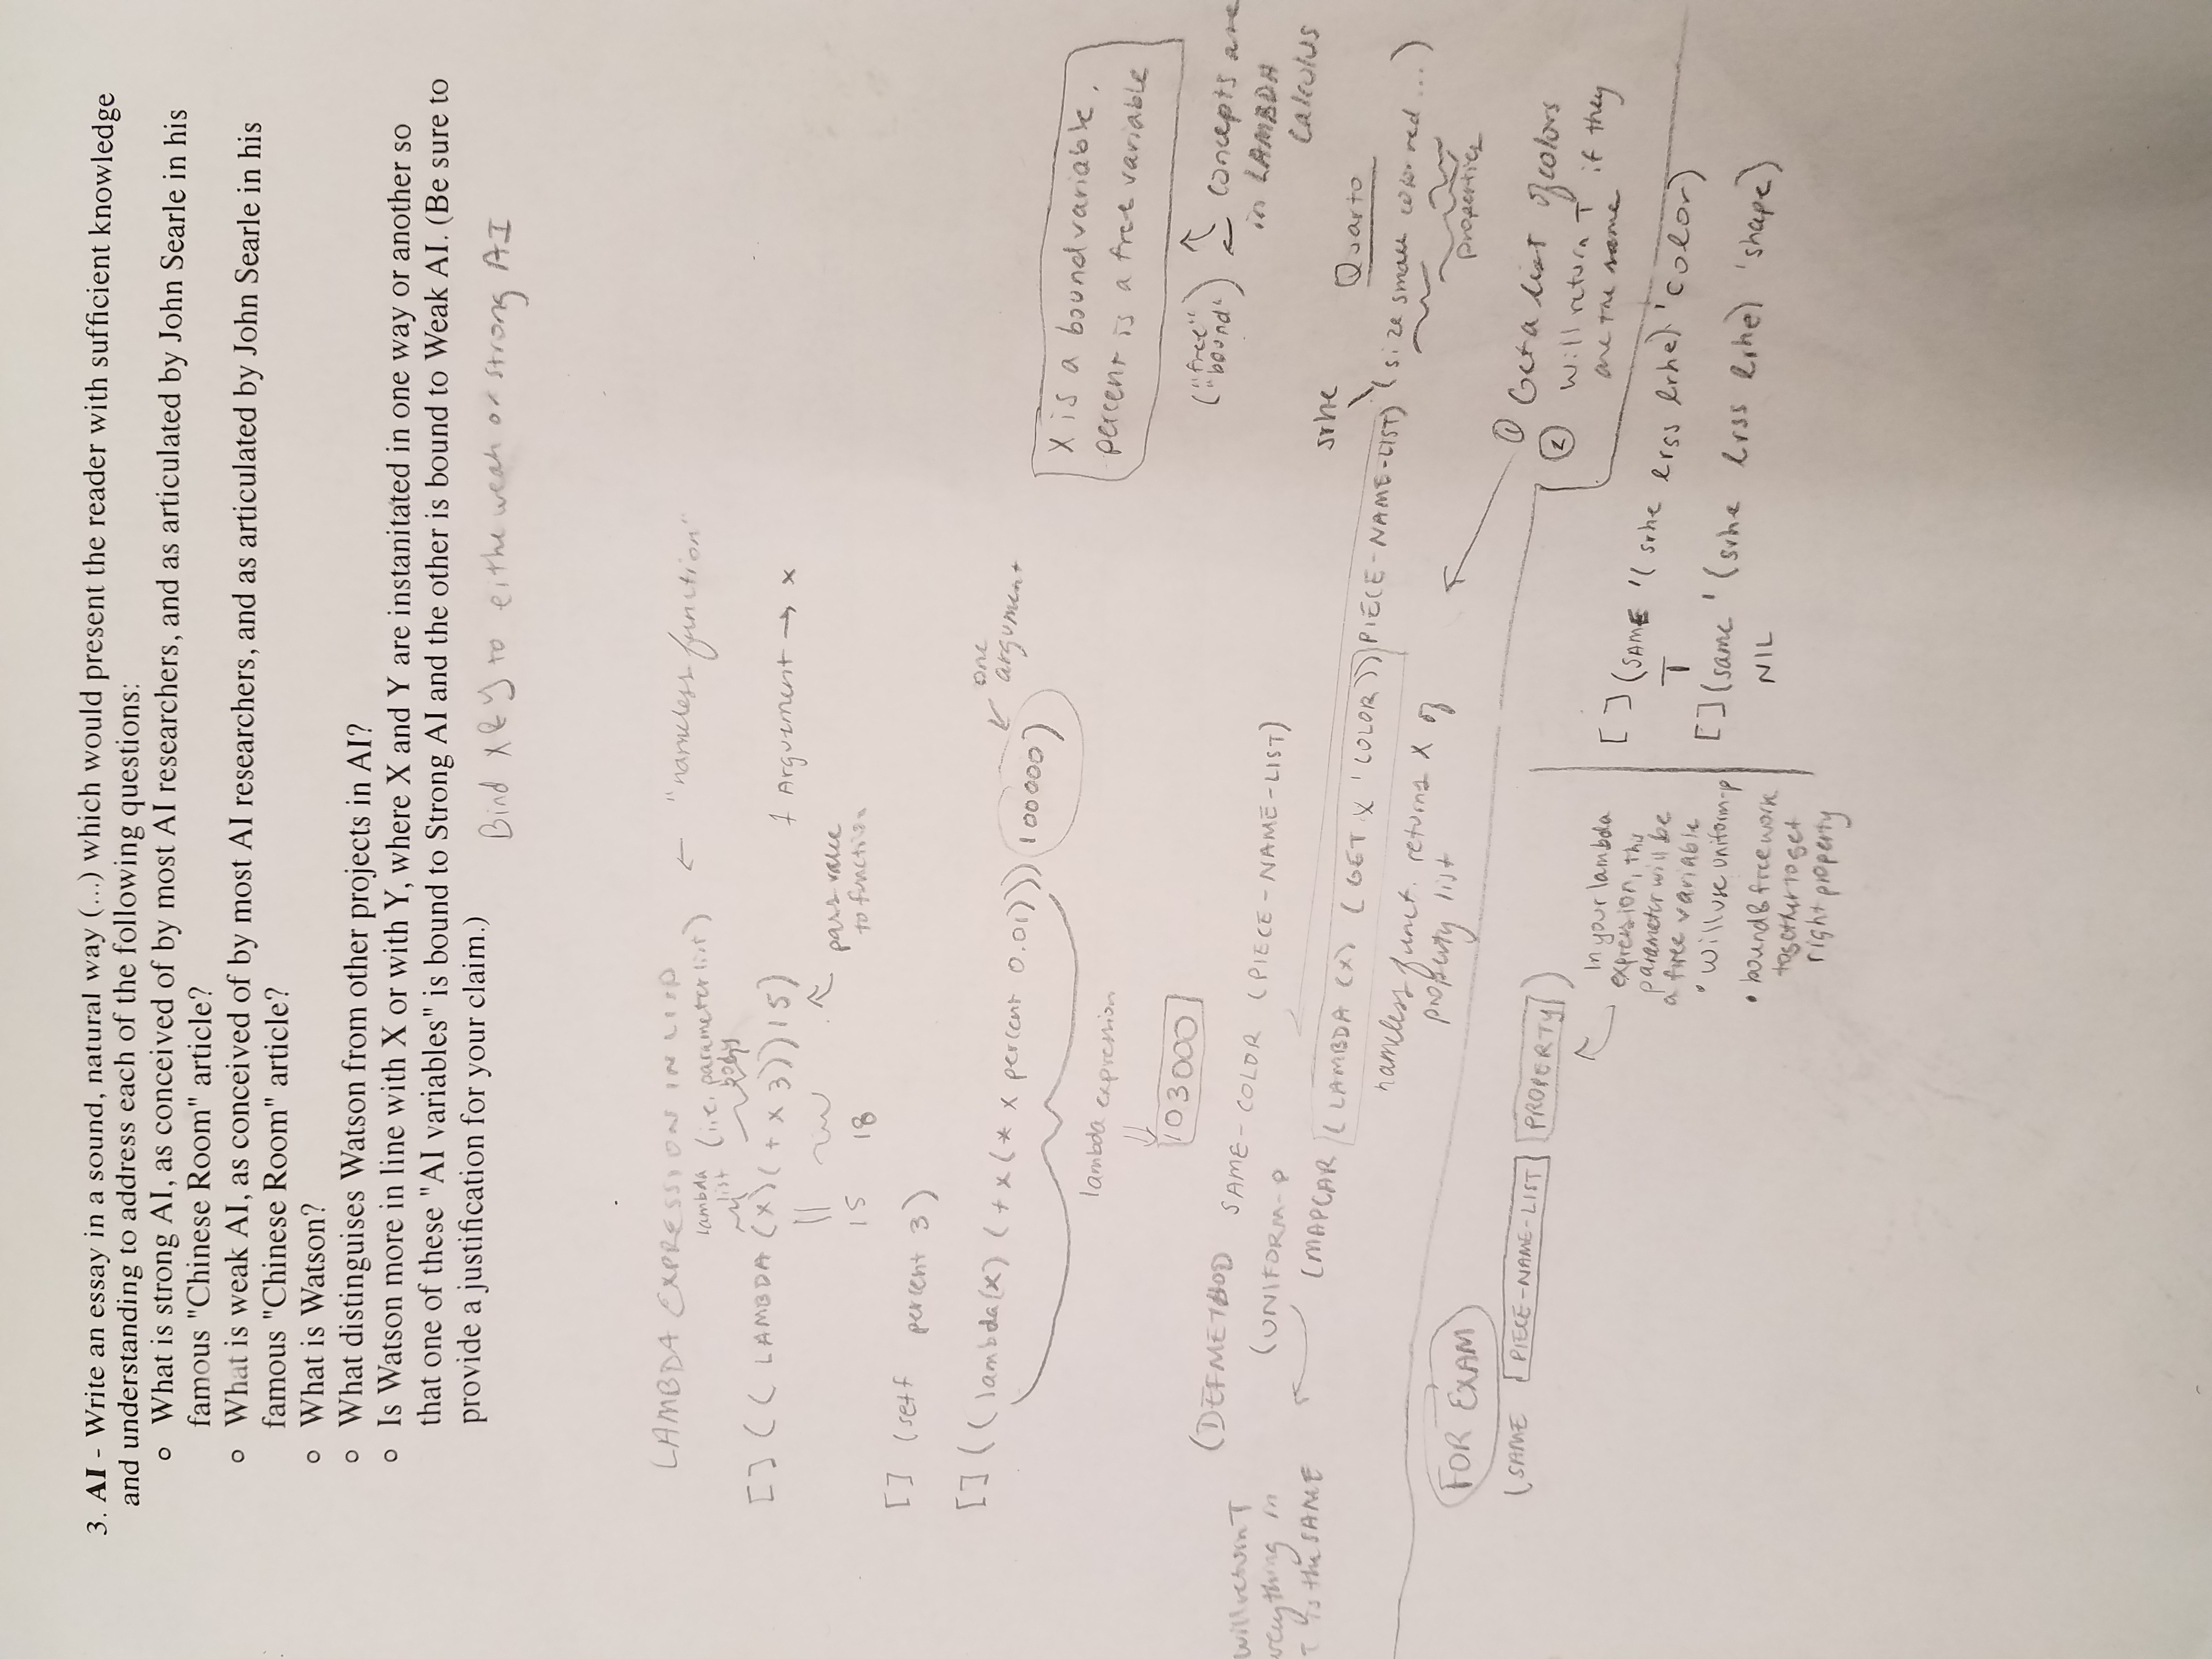 3. AI - Write an essay in a sound, natural way (...) which would present the reader with sufficient knowledge
and understanding to address each of the following questions:
o What is strong AI, as conceived of by most AI researchers, and as articulated by John Searle in his
famous "Chinese Room" article?
o What is weak AI, as conceived of by most AI researchers, and as articulated by John Searle in his
famous "Chinese Room" article?
o What is Watson?
o What distinguises Watson from other projects in AI?
o Is Watson more in line with X or with Y, where X and Y are instanitated in one way or another so
that one of these "AI variables" is bound to Strong AI and the other is bound to Weak AI. (Be sure to
provide a justification for your claim.)
Bind X & Y to eithe weak or strong AI
LAMBDA EXPRESSION IN LISP ← "nameless function"
lambda list (i.e. parameter list)
body
[] (( LAMBDA (x)(+ x 3))15)
1 Arguement → x
15 18
pass value
to function
[] (setf percent 3)
[] ((lambda(x) (+ x (* x percent 0.01))) 100000)
one
argument
lambda expression
103000
X is a bound variable,
percent is a free variable
("free"
"bound")
concepts are
in LAMBDA
calculus
(DEFMETHOD SAME-COLOR (PIECE-NAME-LIST)
(UNIFORM-P
will return T
everything in
is the SAME
(MAPCAR (LAMBDA (X) (GET X 'COLOR)) PIECE-NAME-LIST)
nameless funct. returns X of
property list
srhe
Quarto
(size small color red ...)
properties
① Get a list of colors
② will return T if they
are the same
FOR EXAM
(SAME PIECE-NAME-LIST PROPERTY)
In your lambda
expression, this
parameter will be
a free variable
• will use uniform-p
• bound & free work
together to get
right property
[] (SAME '(srhe lrss lrhe) 'color)
T
[] (same '(srhe lrss lrhe) 'shape)
NIL